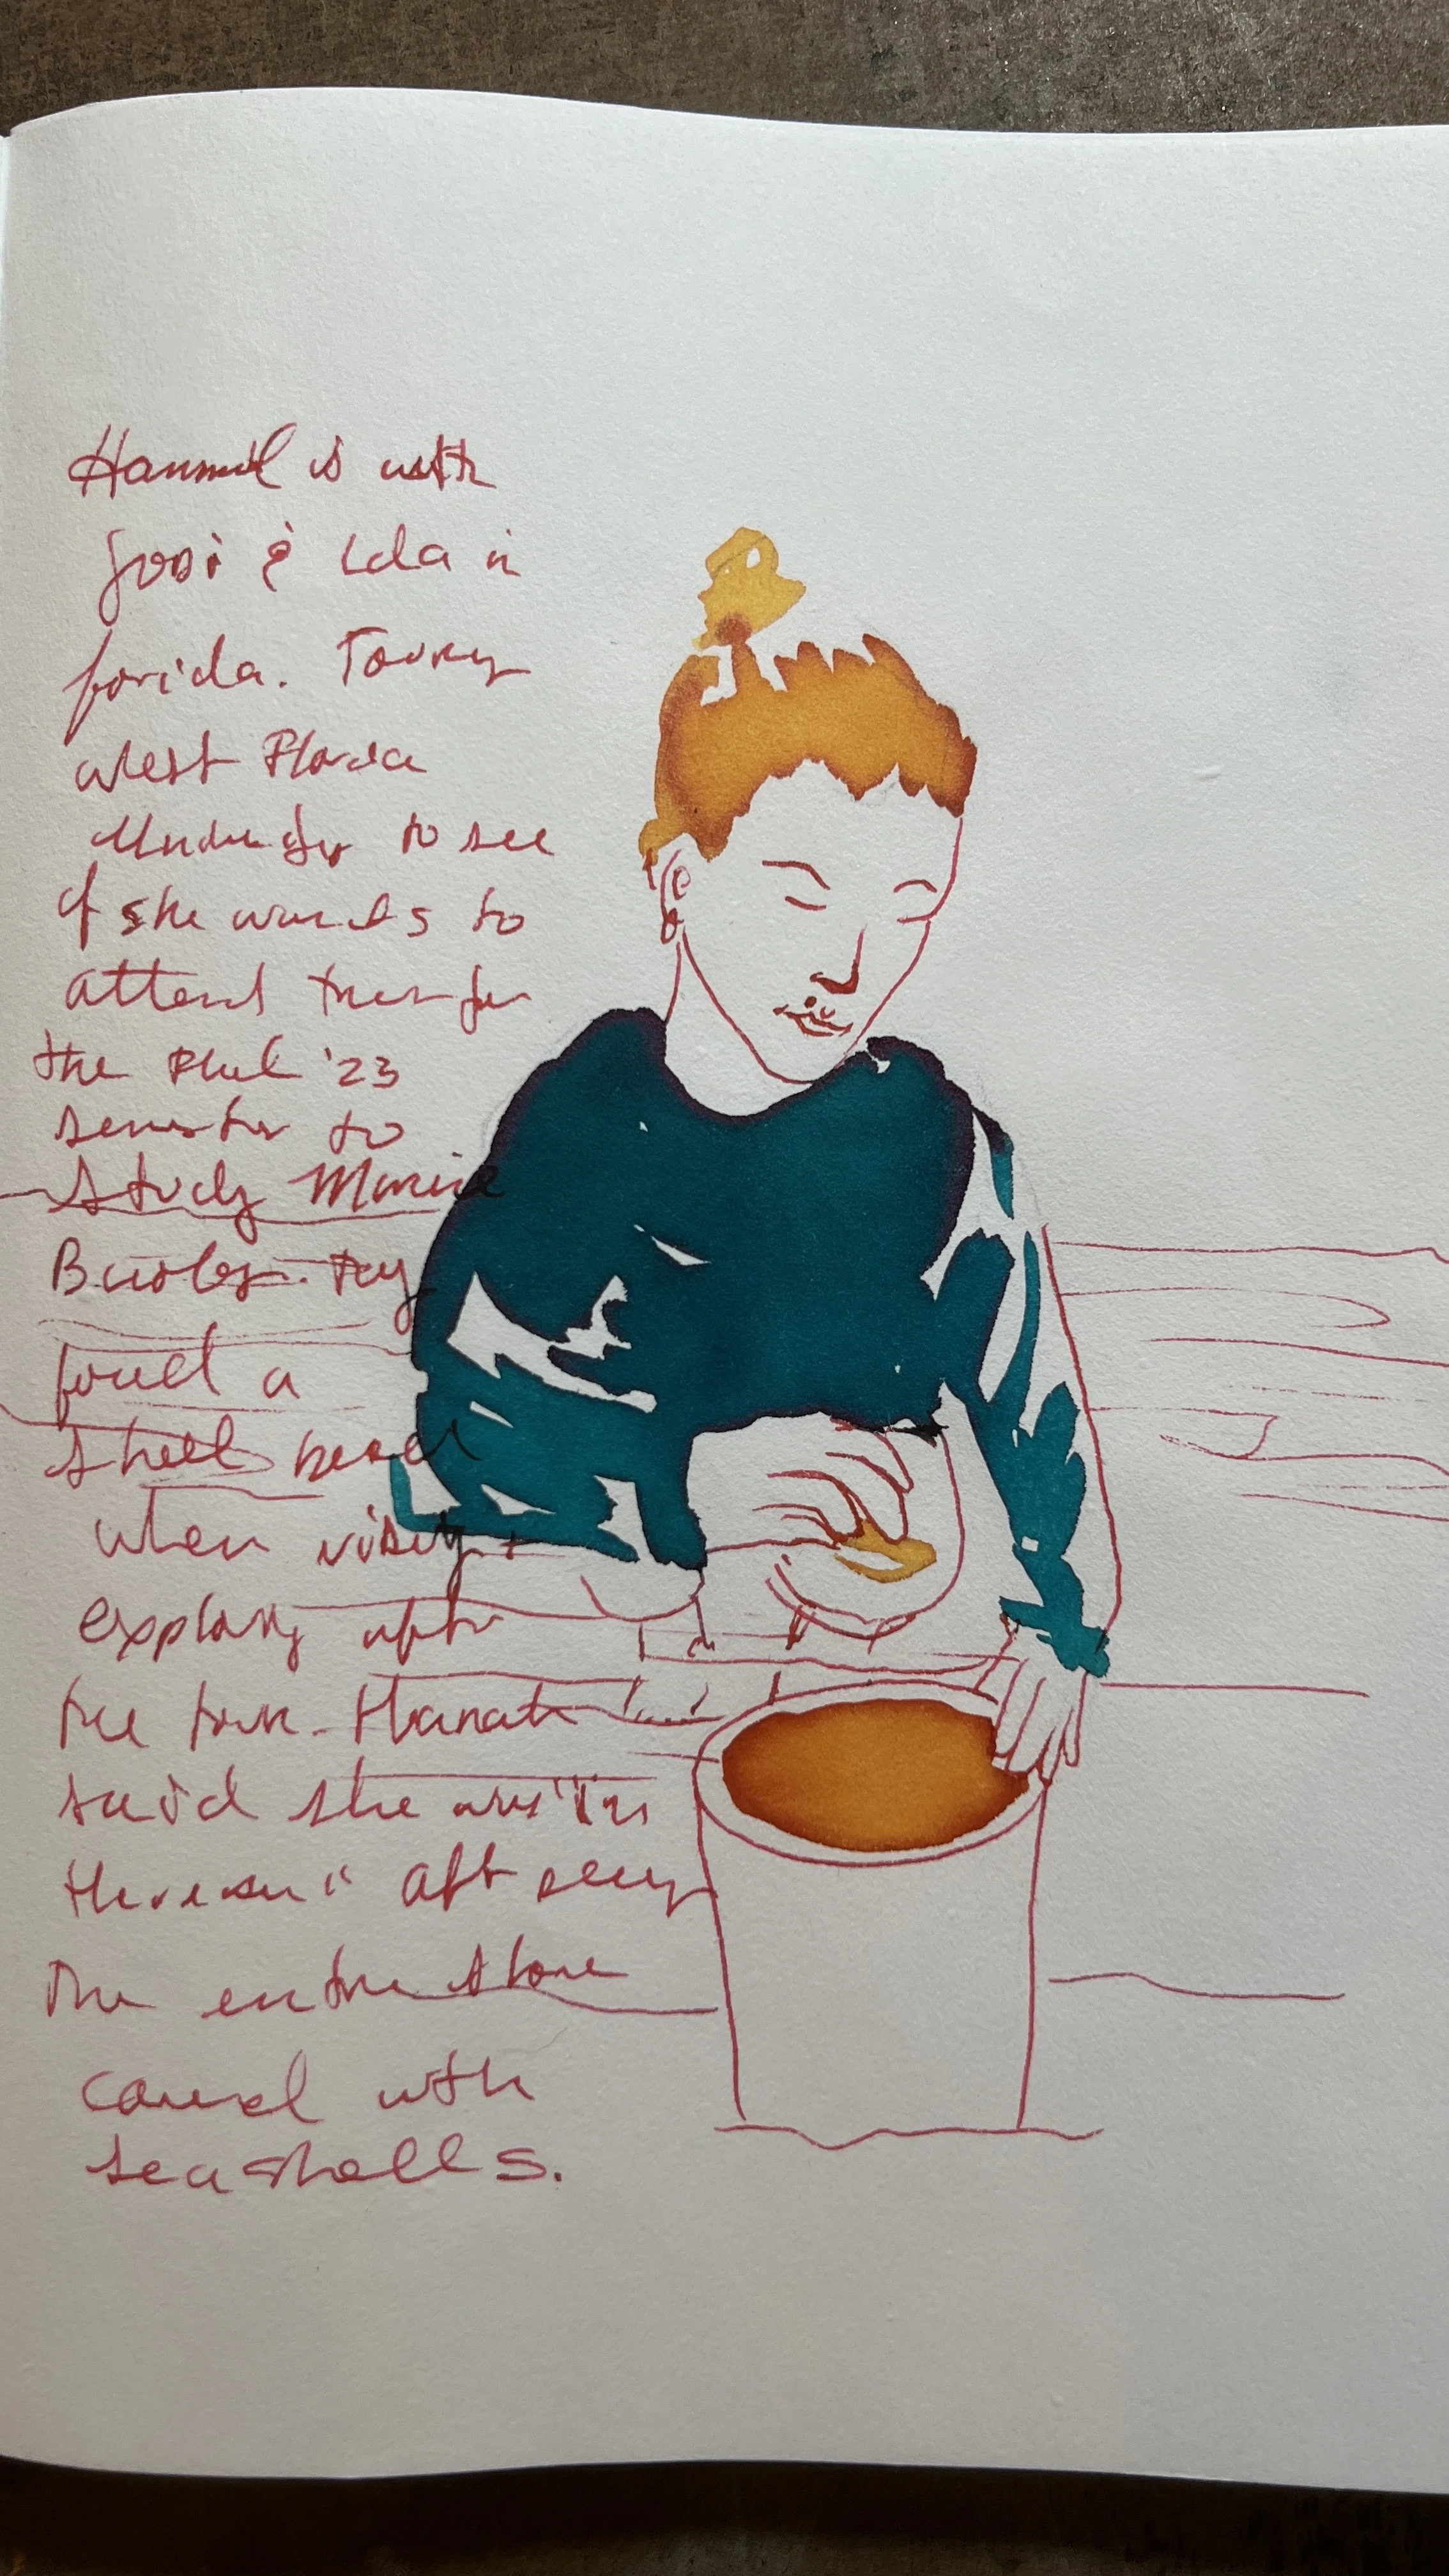 Hannah is with
Josi & Ida in
florida. Touring
West Florida
University to see
if she wants to
attend transfer
the Fall '23
semester to
study Marine
Biology. They
found a
shell beach
when visiting +
exploring after
the tour. Hannah
said she was "in
heaven" after seeing
the entire shore
covered with
seashells.